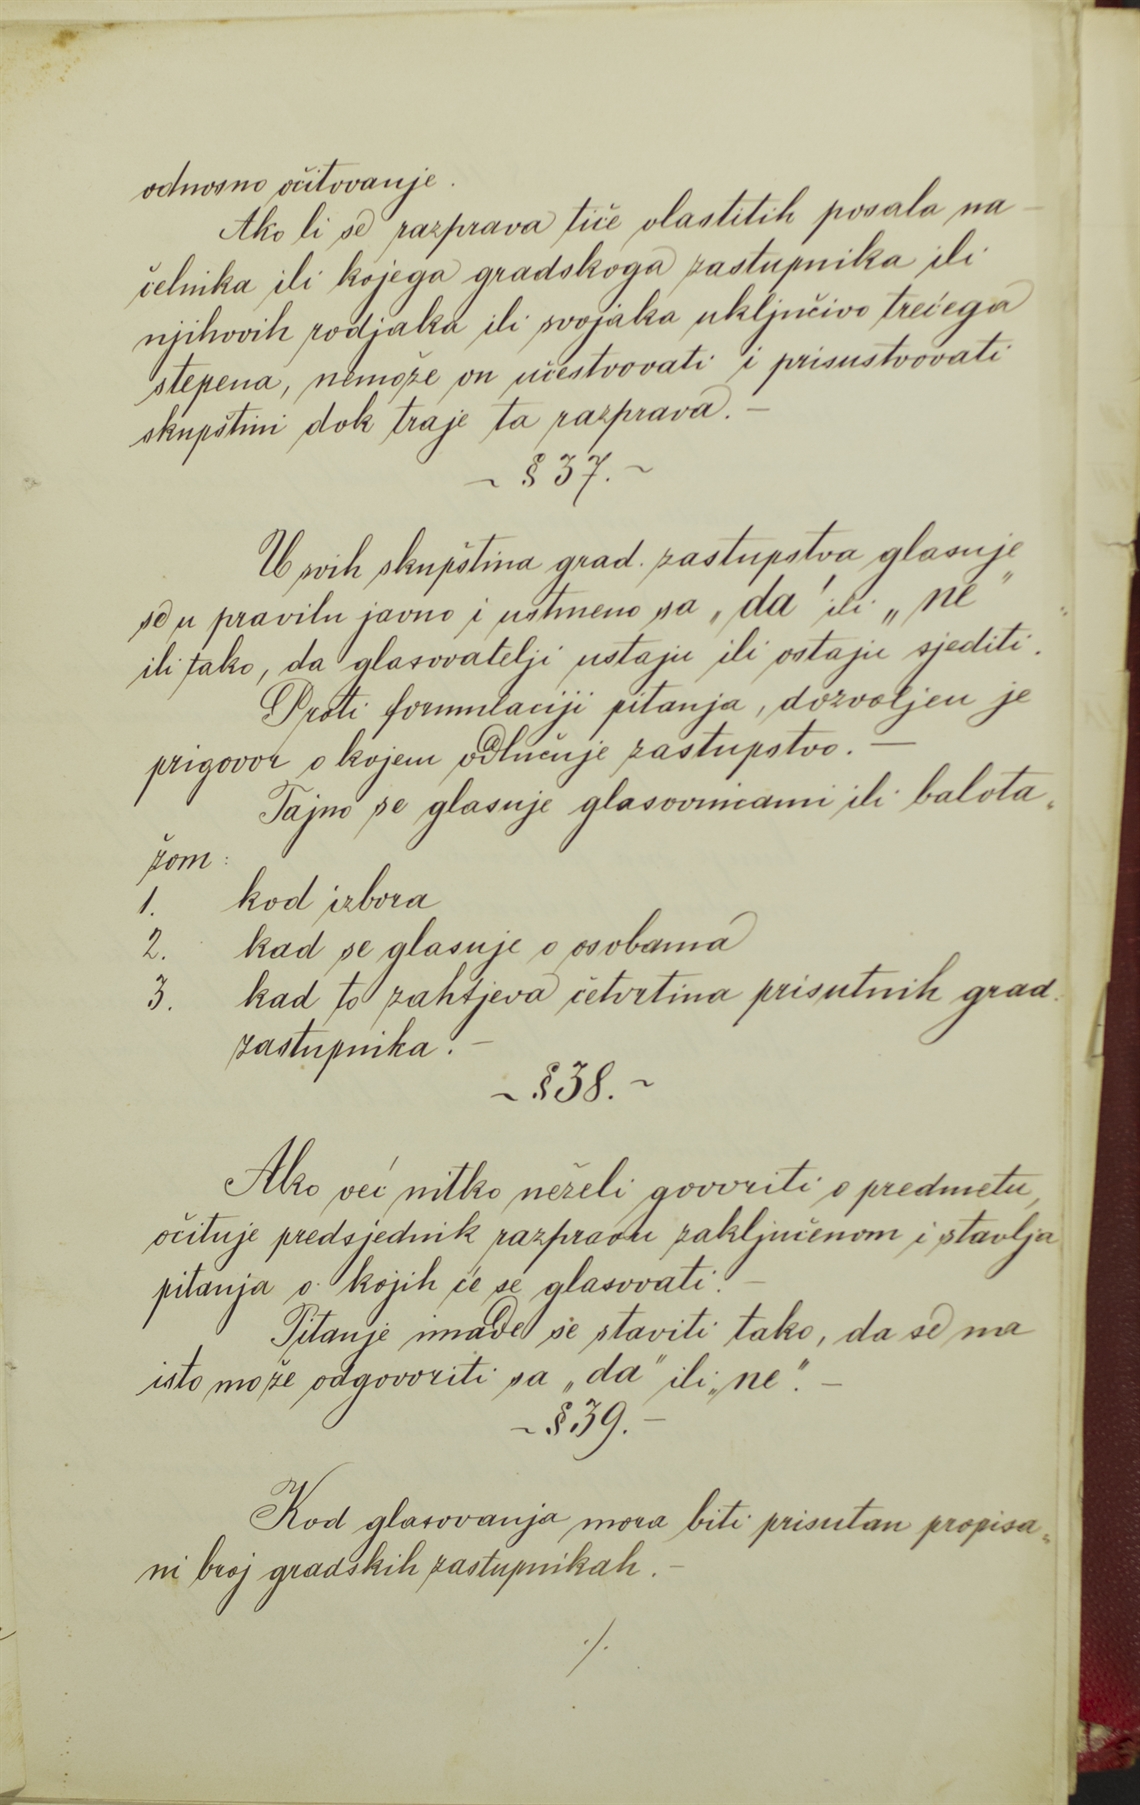 odnosno očitovanje.
Ako li se razprava tiče vlastitih posala na-
čelnika ili kojega gradskoga zastupnika ili
njihovih rodjaka ili svojaka uključivo trećega
stepena, nemože on učestvovati i prisustvovati
skupštini dok traje ta razprava. —
~ § 37. ~
U svih skupština grad. zastupstva glasuje
se u pravilu javno i ustmeno sa „da" ili „ne"
ili tako, da glasovatelji ustaju ili ostaju sjediti.
Proti formulaciji pitanja, dozvoljen je
prigovor o kojem odlučuje zastupstvo. —
Tajno se glasuje glasovnicami ili balota„
žom:
1. kod izbora
2. kad se glasuje o osobama
3. kad to zahtjeva četvrtina prisutnih grad.
zastupnika. —
~ § 38. ~
Ako već nitko neželi govoriti o predmetu,
očituje predsjednik razpravu zaključenom i stavlja
pitanja o kojih će se glasovati. —
Pitanje imade se staviti tako, da se na
isto može odgovoriti sa „da" ili „ne". —
~ § 39. —
Kod glasovanja mora biti prisutan propisa„
ni broj gradskih zastupnikah. —
./.